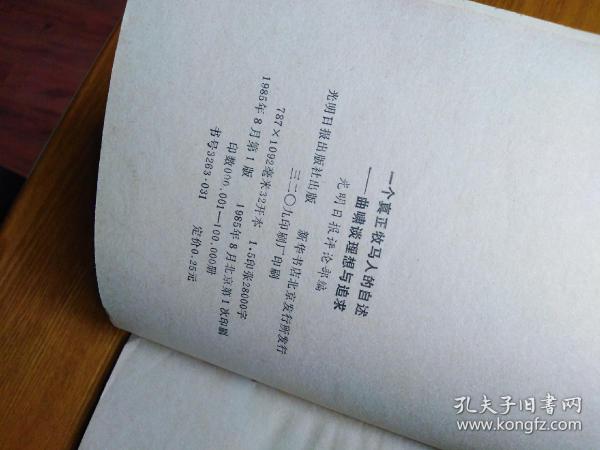 一个真正牧马人的自述
——曲啸谈理想与追求
光明日报评论部编
光明日报出版社出版
新华书店北京发行所发行
三二〇九印刷厂印刷
787×1092毫米32开本 1.5印张28000字
1985年8月第1版 1985年8月北京第1次印刷
印数000,001—100,000册
书号3263·031 定价0.25元
孔夫子旧书网
www.kongfz.com